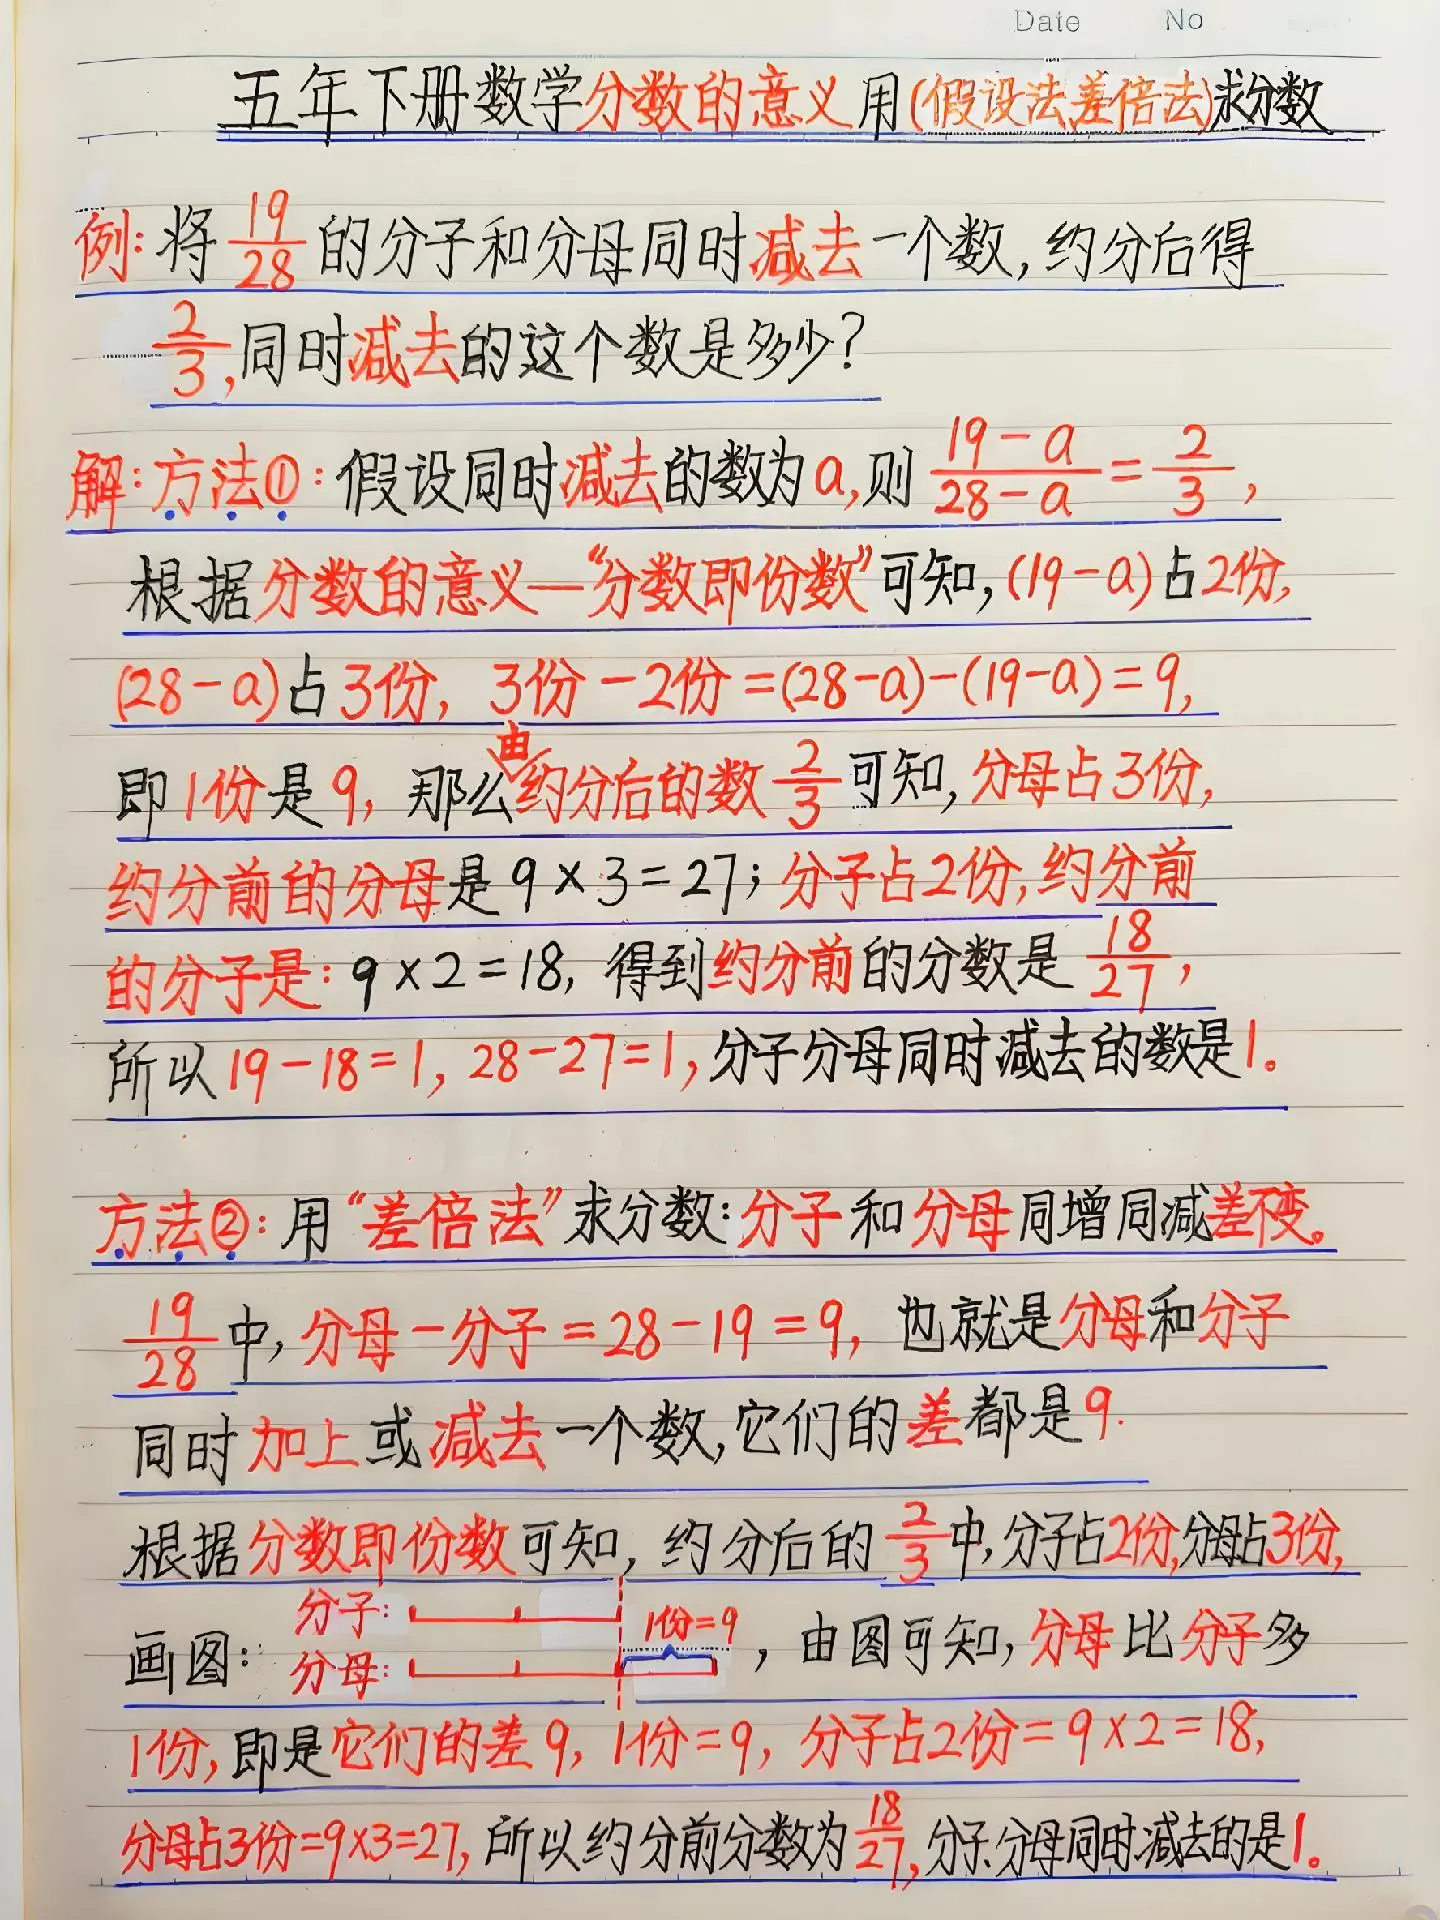 Date No
五年下册数学分数的意义用(假设法差倍法)求分数
例:将19/28的分子和分母同时减去一个数,约分后得
2/3,同时减去的这个数是多少?
解:方法①:假设同时减去的数为a,则(19-a)/(28-a)=2/3,
根据分数的意义—“分数即份数”可知,(19-a)占2份,
(28-a)占3份,3份-2份=(28-a)-(19-a)=9,
即1份是9,那么由约分后的数2/3可知,分母占3份,
约分前的分母是9×3=27;分子占2份,约分前
的分子是:9×2=18,得到约分前的分数是18/27,
所以19-18=1,28-27=1,分子分母同时减去的数是1。
方法②:用“差倍法”求分数:分子和分母同增同减差不变。
19/28中,分母-分子=28-19=9,也就是分母和分子
同时加上或减去一个数,它们的差都是9.
根据分数即份数可知,约分后的2/3中,分子占2份,分母占3份,
画图:分子: 分母: 1份=9,由图可知,分母比分子多
1份,即是它们的差9,1份=9,分子占2份=9×2=18,
分母占3份=9×3=27,所以约分前分数为18/27,分子、分母同时减去的是1。